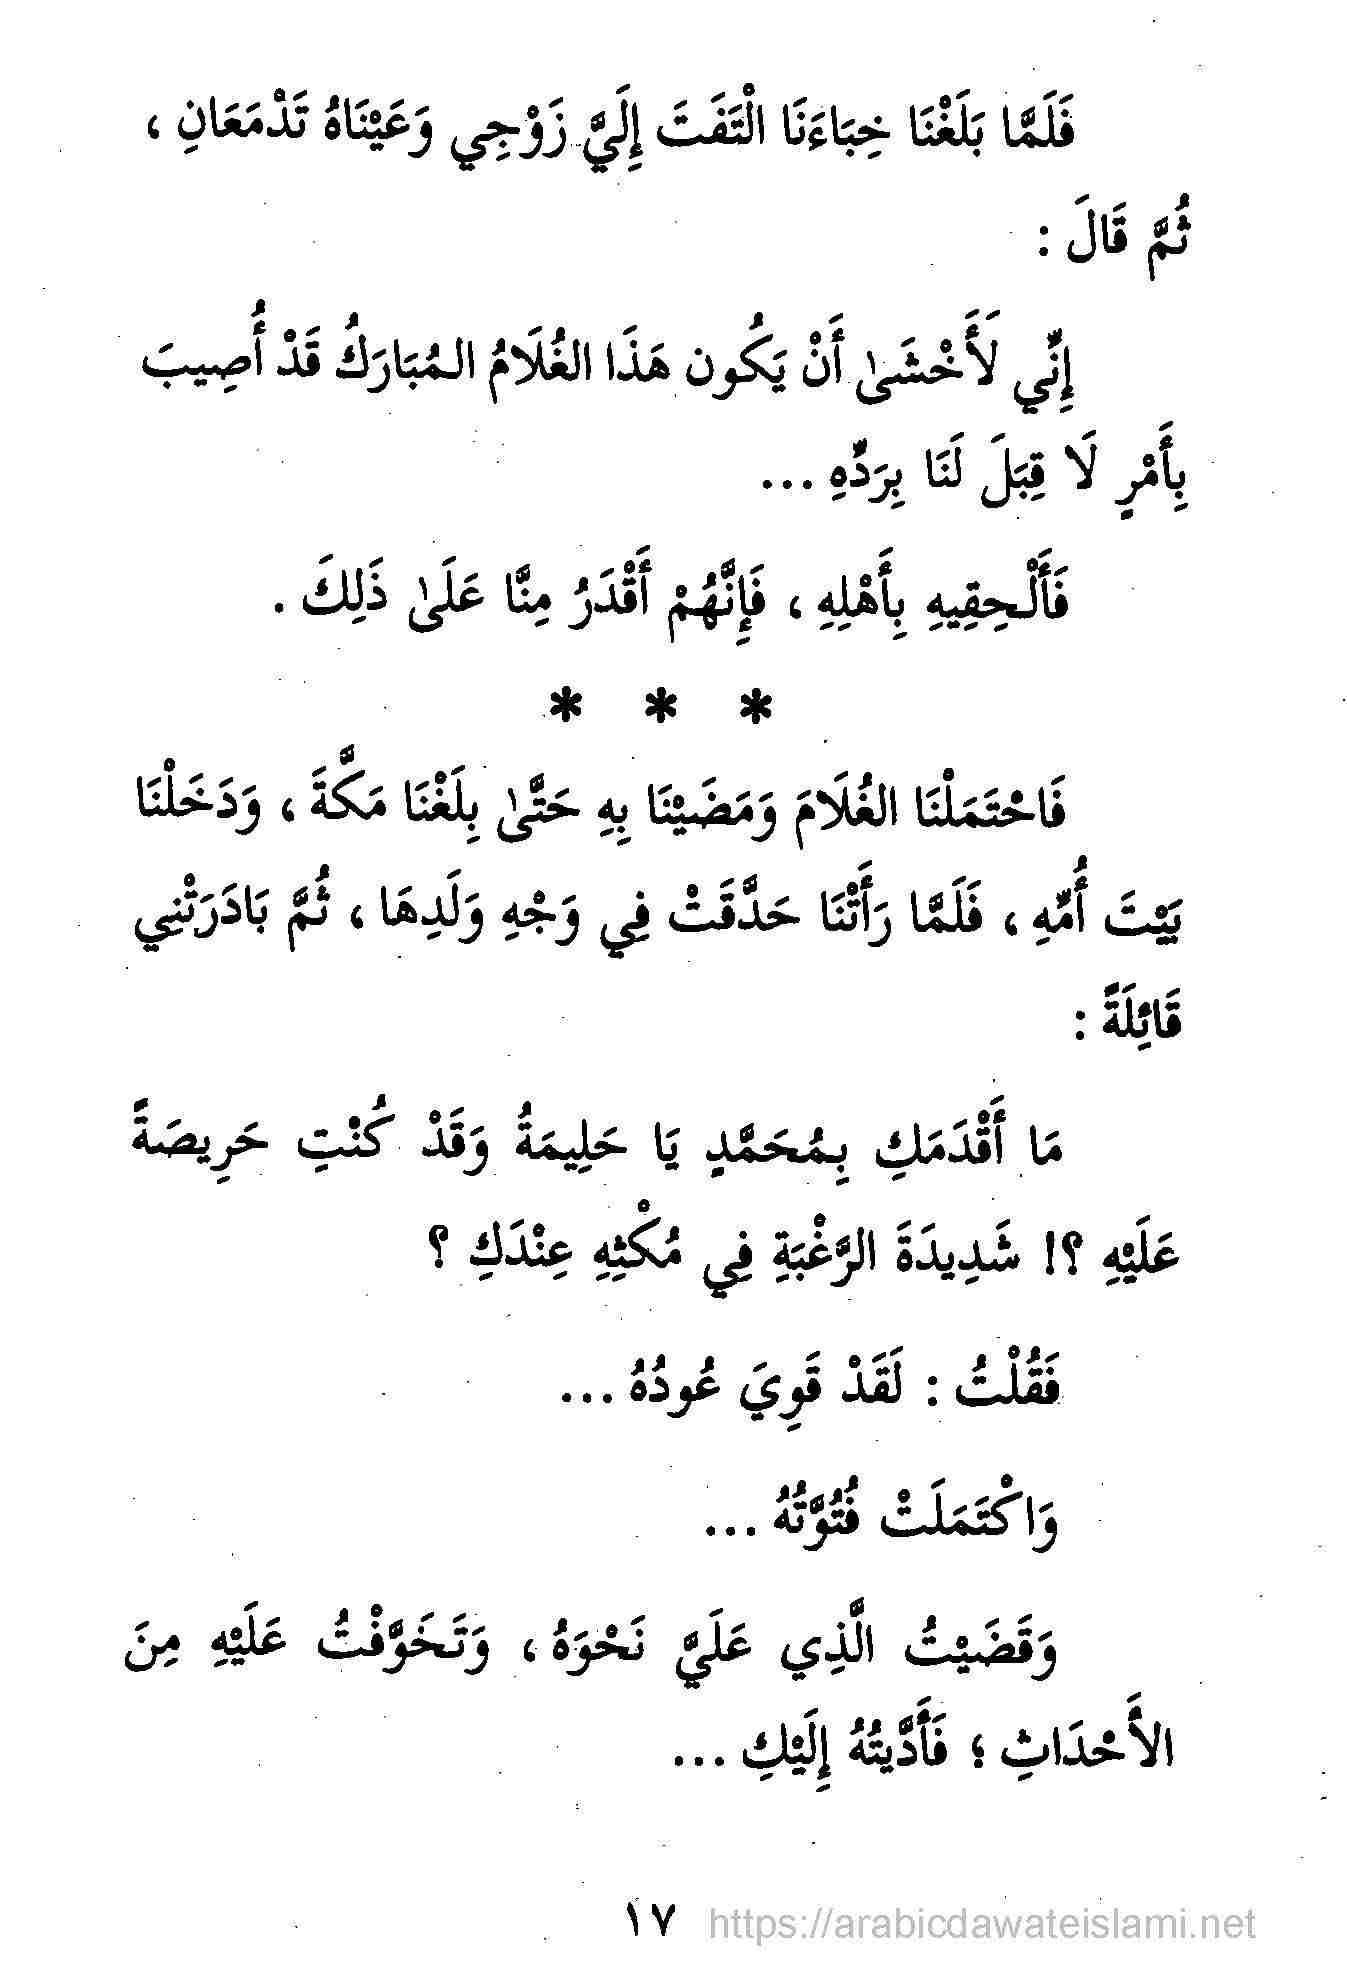 فَلَمَّا بَلَغْنَا خِبَاءَنَا الْتَفَتَ إِلَيَّ زَوْجِي وَعَيْنَاهُ تَدْمَعَانِ ،
ثُمَّ قَالَ :
إِنِّي لَأَخْشَىٰ أَنْ يَكُون هَذَا الغُلَامُ المُبَارَكُ قَدْ أُصِيبَ
بِأَمْرٍ لَا قِبَلَ لَنَا بِرَدِّهِ ...
فَأَلْحِقِيهِ بِأَهْلِهِ ، فَإِنَّهُمْ أَقْدَرُ مِنَّا عَلَىٰ ذَلِكَ .
* * *
فَاحْتَمَلْنَا الغُلَامَ وَمَضَيْنَا بِهِ حَتَّىٰ بِلَغْنَا مَكَّةَ ، وَدَخَلْنَا
بَيْتَ أُمِّهِ ، فَلَمَّا رَأَتْنَا حَدَّقَتْ فِي وَجْهِ وَلَدِهَا ، ثُمَّ بَادَرَتْنِي
قَائِلَةً :
مَا أَقْدَمَكِ بِمُحَمَّدٍ يَا حَلِيمَةُ وَقَدْ كُنْتِ حَرِيصَةً
عَلَيْهِ ؟! شَدِيدَةَ الرَّغْبَةِ فِي مُكْثِهِ عِنْدَكِ ؟
فَقُلْتُ : لَقَدْ قَوِيَ عُودُهُ ...
وَاكْتَمَلَتْ فُتُوَّتُهُ ...
وَقَضَيْتُ الَّذِي عَلَيَّ نَحْوَهُ ، وَتَخَوَّفْتُ عَلَيْهِ مِنَ
الأَحْدَاثِ ؛ فَأَدَّيتُهُ إِلَيْكِ ...
١٧ https://arabicdawateislami.net